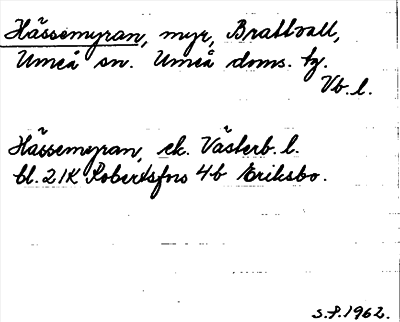 Hässemyran, myr, Brattvall,
Umeå sn. Umeå doms. tg.
Vb. l.
Hässemyran, ek. Västerb. l.
bl. 21K Robertsfors 4b Eriksbo.
s.f. 1962.